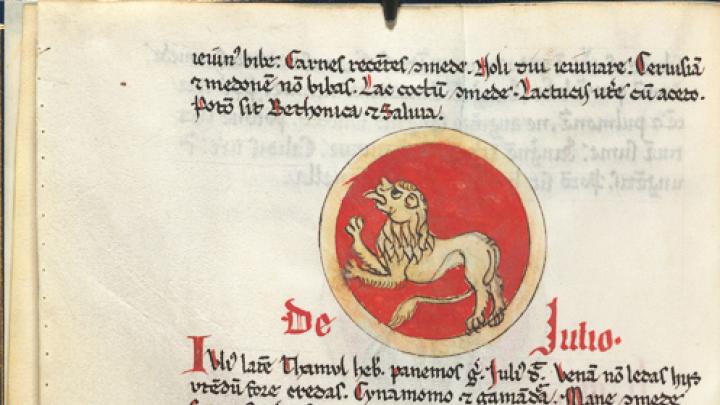 ieiun⁹ bibe: Carnes recētes ꝯmede. Noli diu ieiunare: Ceruisiā
⁊ medonē nō bibas. Lac coctū ꝯmede. Lactucis utē cū aceto.
Potō sit Bethonica ⁊ Saluia.
De Julio.
Iuli⁹ latē Thamul heb. panemos g̅. Juli⁹ d̅. Venā nō ledas huꝰ
utēdū fore credas. Cynamomo ⁊ gamādā. Mane ꝯmede